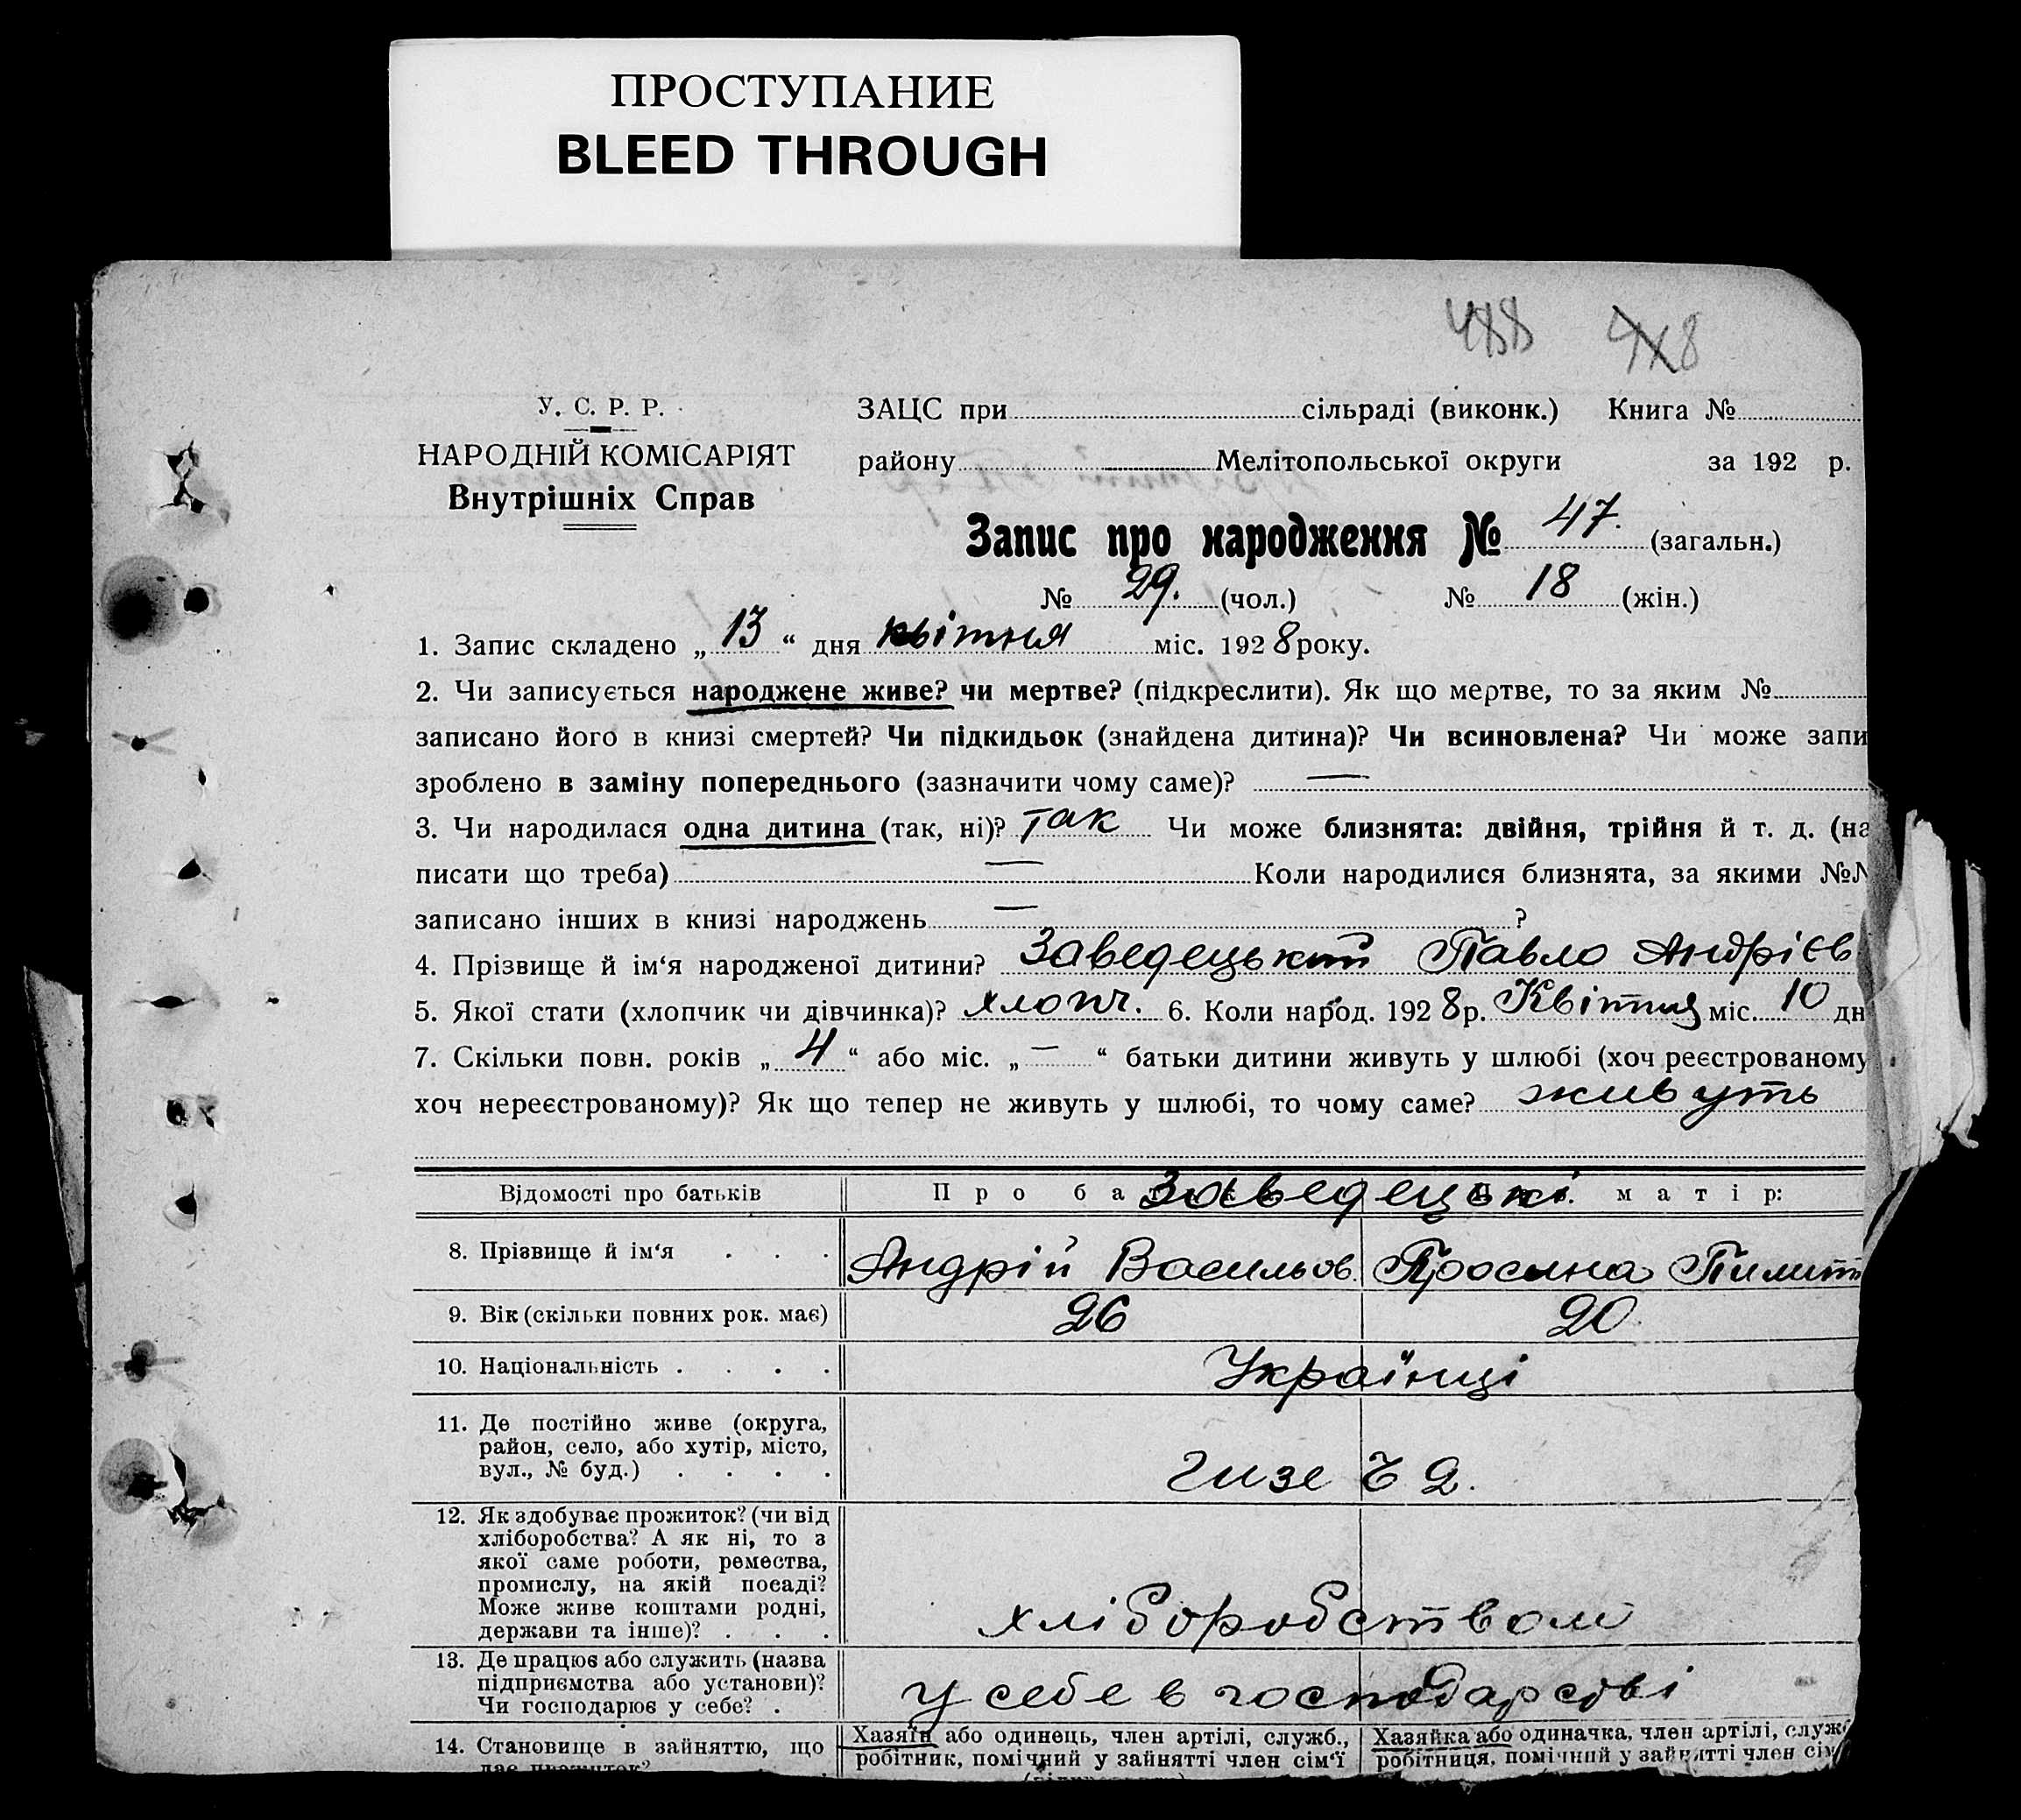 ПРОСТУПАНИЕ
BLEED THROUGH
488 478
У. С. Р. Р.
НАРОДНІЙ КОМІСАРІЯТ
Внутрішніх Справ
ЗАЦС при сільраді (виконк.) Книга №
району Мелітопольської округи за 192 р.
Запис про народження № 47. (загальн.)
№ 29. (чол.) № 18 (жін.)
1. Запис складено „ 13 “ дня квітня міс. 1928 року.
2. Чи записується народжене живе? чи мертве? (підкреслити). Як що мертве, то за яким №
записано його в книзі смертей? Чи підкидьок (знайдена дитина)? Чи всиновлена? Чи може запи
зроблено в заміну попереднього (зазначити чому саме)? —
3. Чи народилася одна дитина (так, ні)? так Чи може близнята: двійня, трійня й т. д. (на
писати що треба) — Коли народилися близнята, за якими №№
записано інших в книзі народжень — ?
4. Прізвище й ім‘я народженої дитини? Заведецький Павло Андрієв
5. Якої стати (хлопчик чи дівчинка)? хлопч. 6. Коли народ. 1928 р. Квітня міс. 10 дн
7. Скільки повн. років „ 4 “ або міс. „ — “ батьки дитини живуть у шлюбі (хоч реєстрованому
хоч нереєстрованому)? Як що тепер не живуть у шлюбі, то чому саме? живуть
Відомості про батьків Про матір:
Заведецькі.
8. Прізвище й ім‘я . . . Андрій Васильов. Просина Пилип
9. Вік (скільки повних рок. має) 26 20
10. Національність . . . . Українці
11. Де постійно живе (округа,
район, село, або хутір, місто,
вул., № буд.) . . . . 2.
12. Як здобуває прожиток? (чи від
хліборобства? А як ні, то з
якої саме роботи, ремества,
промислу, на якій посаді?
Може живе коштами родні,
держави та інше)? . . . хліборобством
13. Де працює або служить (назва
підприємства або установи)?
Чи господарює у себе? . у себе в господарстві
14. Становище в зайняттю, що
Хазяїн або одинець, член артілі, служб.,
робітник, помічний у зайнятті член сім‘ї
Хазяйка або одиначка, член артілі, служ
робітниця, помічний у зайнятті член сім